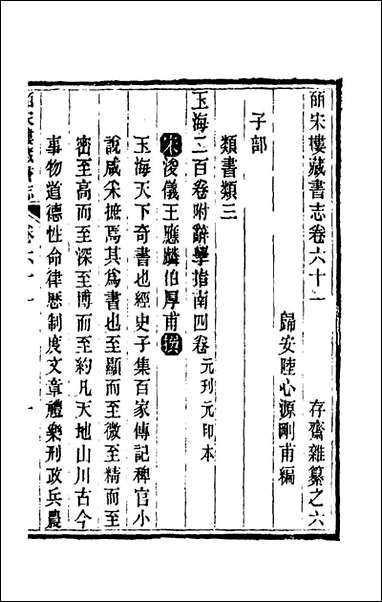 皕宋樓藏書志卷六十一　存齋雜纂之六
歸安陸心源剛甫編
子部
類書類三
玉海二百卷附辭學指南四卷 元刊元印本
宋浚儀王應麟伯厚甫撰
玉海天下奇書也經史子集百家傳記稗官小
說咸采摭焉其為書也至顯而至微至精而至
密至高而至深至博而至約凡天地山川古今
事物道德性命律歷制度文章禮樂刑政兵農
皕宋樓藏書志 卷六十一 一